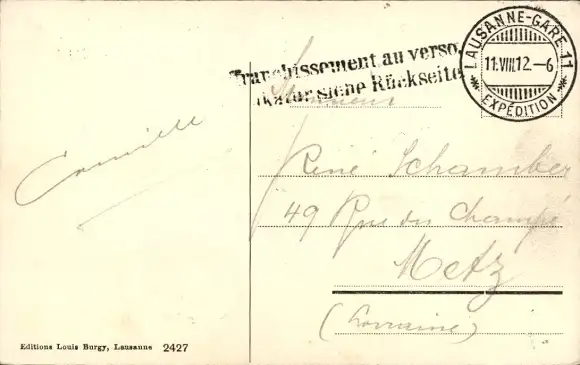 Franchissement au verso.
Frankatur siehe Rückseite
LAUSANNE-GARE 11
11.VIII.12.-6
EXPÉDITION
Monsieur
Camille
René Schamber
49 Rue du Champé
Metz
(Lorraine)
Editions Louis Burgy, Lausanne 2427